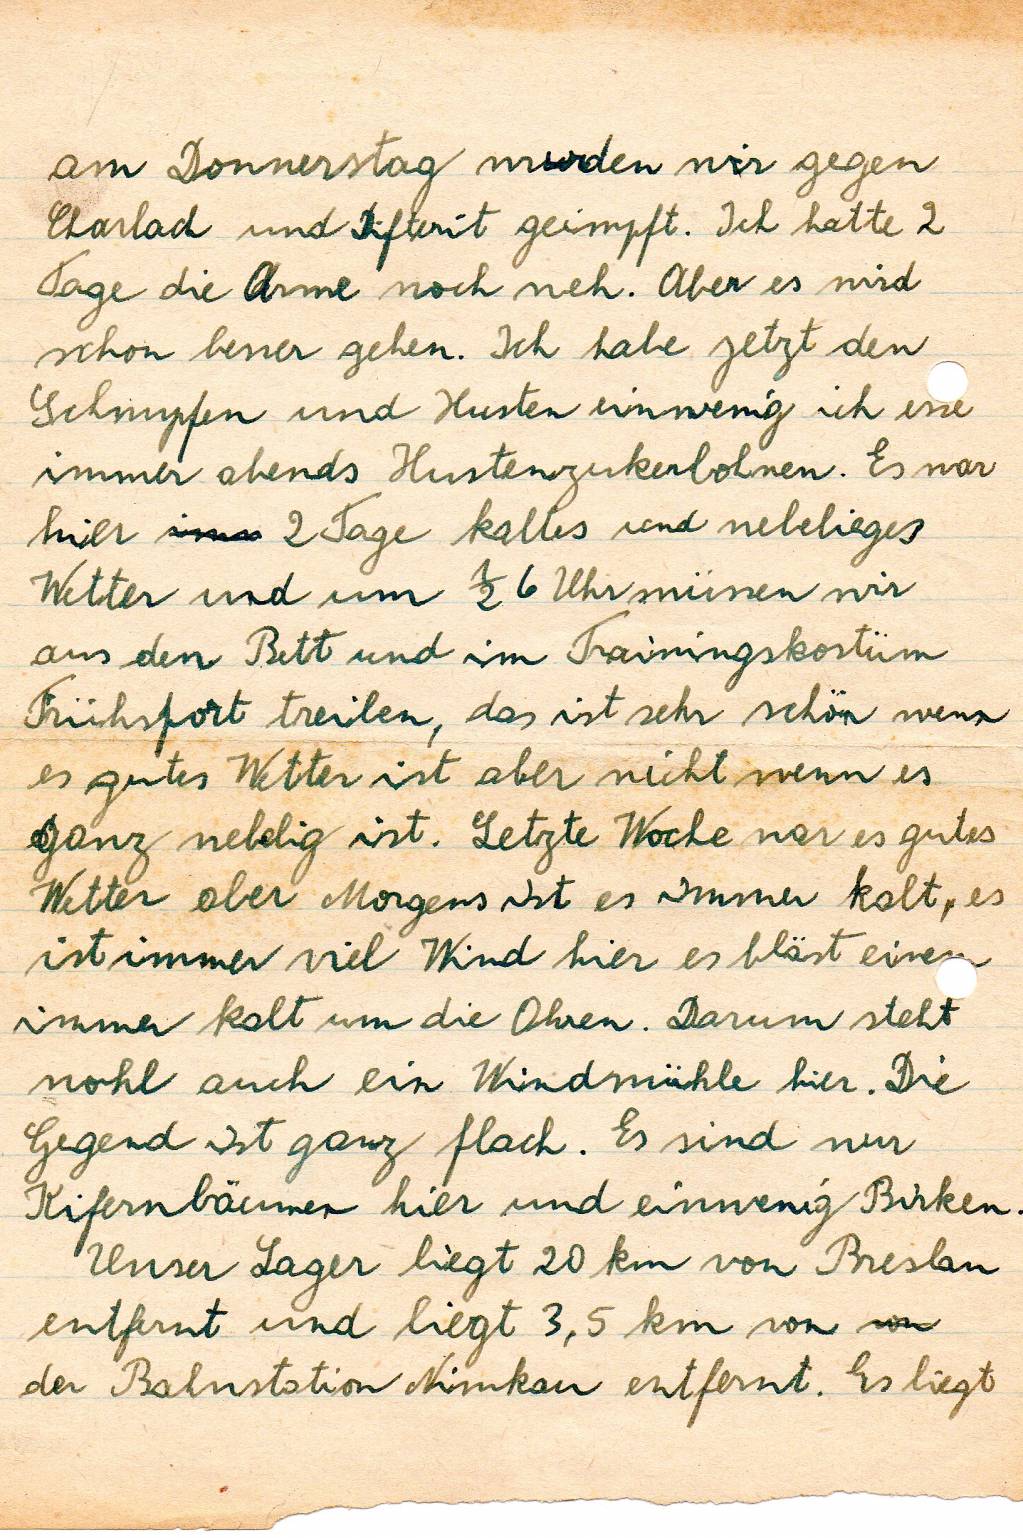 am Donnerstag wurden wir gegen
Charlach und Difterit geimpft. Ich hatte 2
Tage die Arme noch weh. Aber es wird
schon besser gehen. Ich habe jetzt den
Schnupfen und Husten einwenig ich esse
immer abends Hustenzukerbolnen. Es war
hier 2 Tage kaltes und nebelieges
Wetter und um ½ 6 Uhr müssen wir
aus den Bett und im Trainingskostüm
Frühsport treiben, das ist sehr schön wenn
es gutes Wetter ist aber nicht wenn es
ganz neblig ist. Letzte Woche war es gutes
Wetter aber Morgens ist es immer kalt, es
ist immer viel Wind hier es bläst einem
immer kalt um die Ohren. Darum steht
wohl auch ein Windmühle hier. Die
Gegend ist ganz flach. Es sind nur
Kifernbäumen hier und einwenig Birken.
Unser Lager liegt 20 km von Breslau
entfernt und liegt 3,5 km von von
der Bahnstation Nimkau entfernt. Es liegt